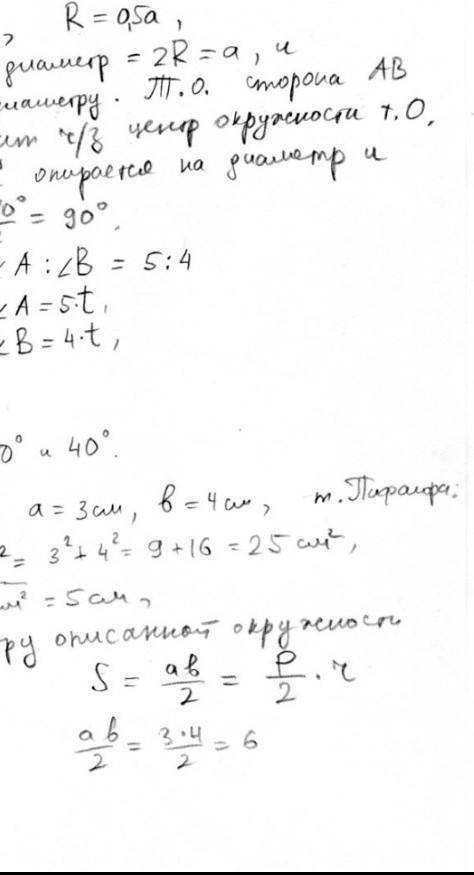 R = 0,5a,
диаметр = 2R = a, и
иаметру. Т.О. сторона AB
ит ч/з центр окружности т.О,
опирается на диаметр и
0° = 90°.
A : ∠B = 5:4
∠A = 5·t,
∠B = 4·t,
0° и 40°.
a = 3см, b = 4см, т. Пифагора:
² = 3² + 4² = 9 + 16 = 25 см²,
см² = 5 см,
ру описанной окружности
S = ab/2 = P/2 · r
ab/2 = 3·4/2 = 6